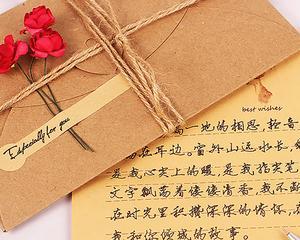 Especially for you
best wishes
高一地的相思，轻音
在耳边。窗外山远水长，
是我心尖上的暖，是我指尖笔
文字飘高着缕缕清香，我不
在时光里积攒深深的情怀，
我和你倾城的故事。